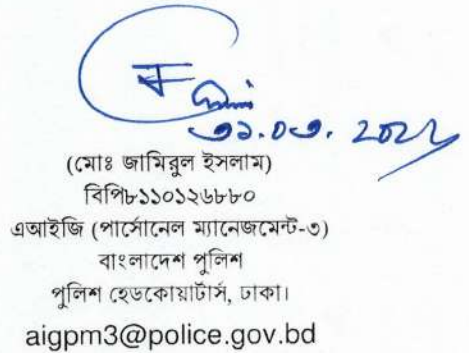 ৩১.০৩.
(মোঃ জামিরুল ইসলাম)
বিপি৮১১০১২৬৮৮০
এআইজি (পার্সোনেল ম্যানেজমেন্ট-৩)
বাংলাদেশ পুলিশ
পুলিশ হেডকোয়ার্টার্স, ঢাকা।
aigpm3@police.gov.bd